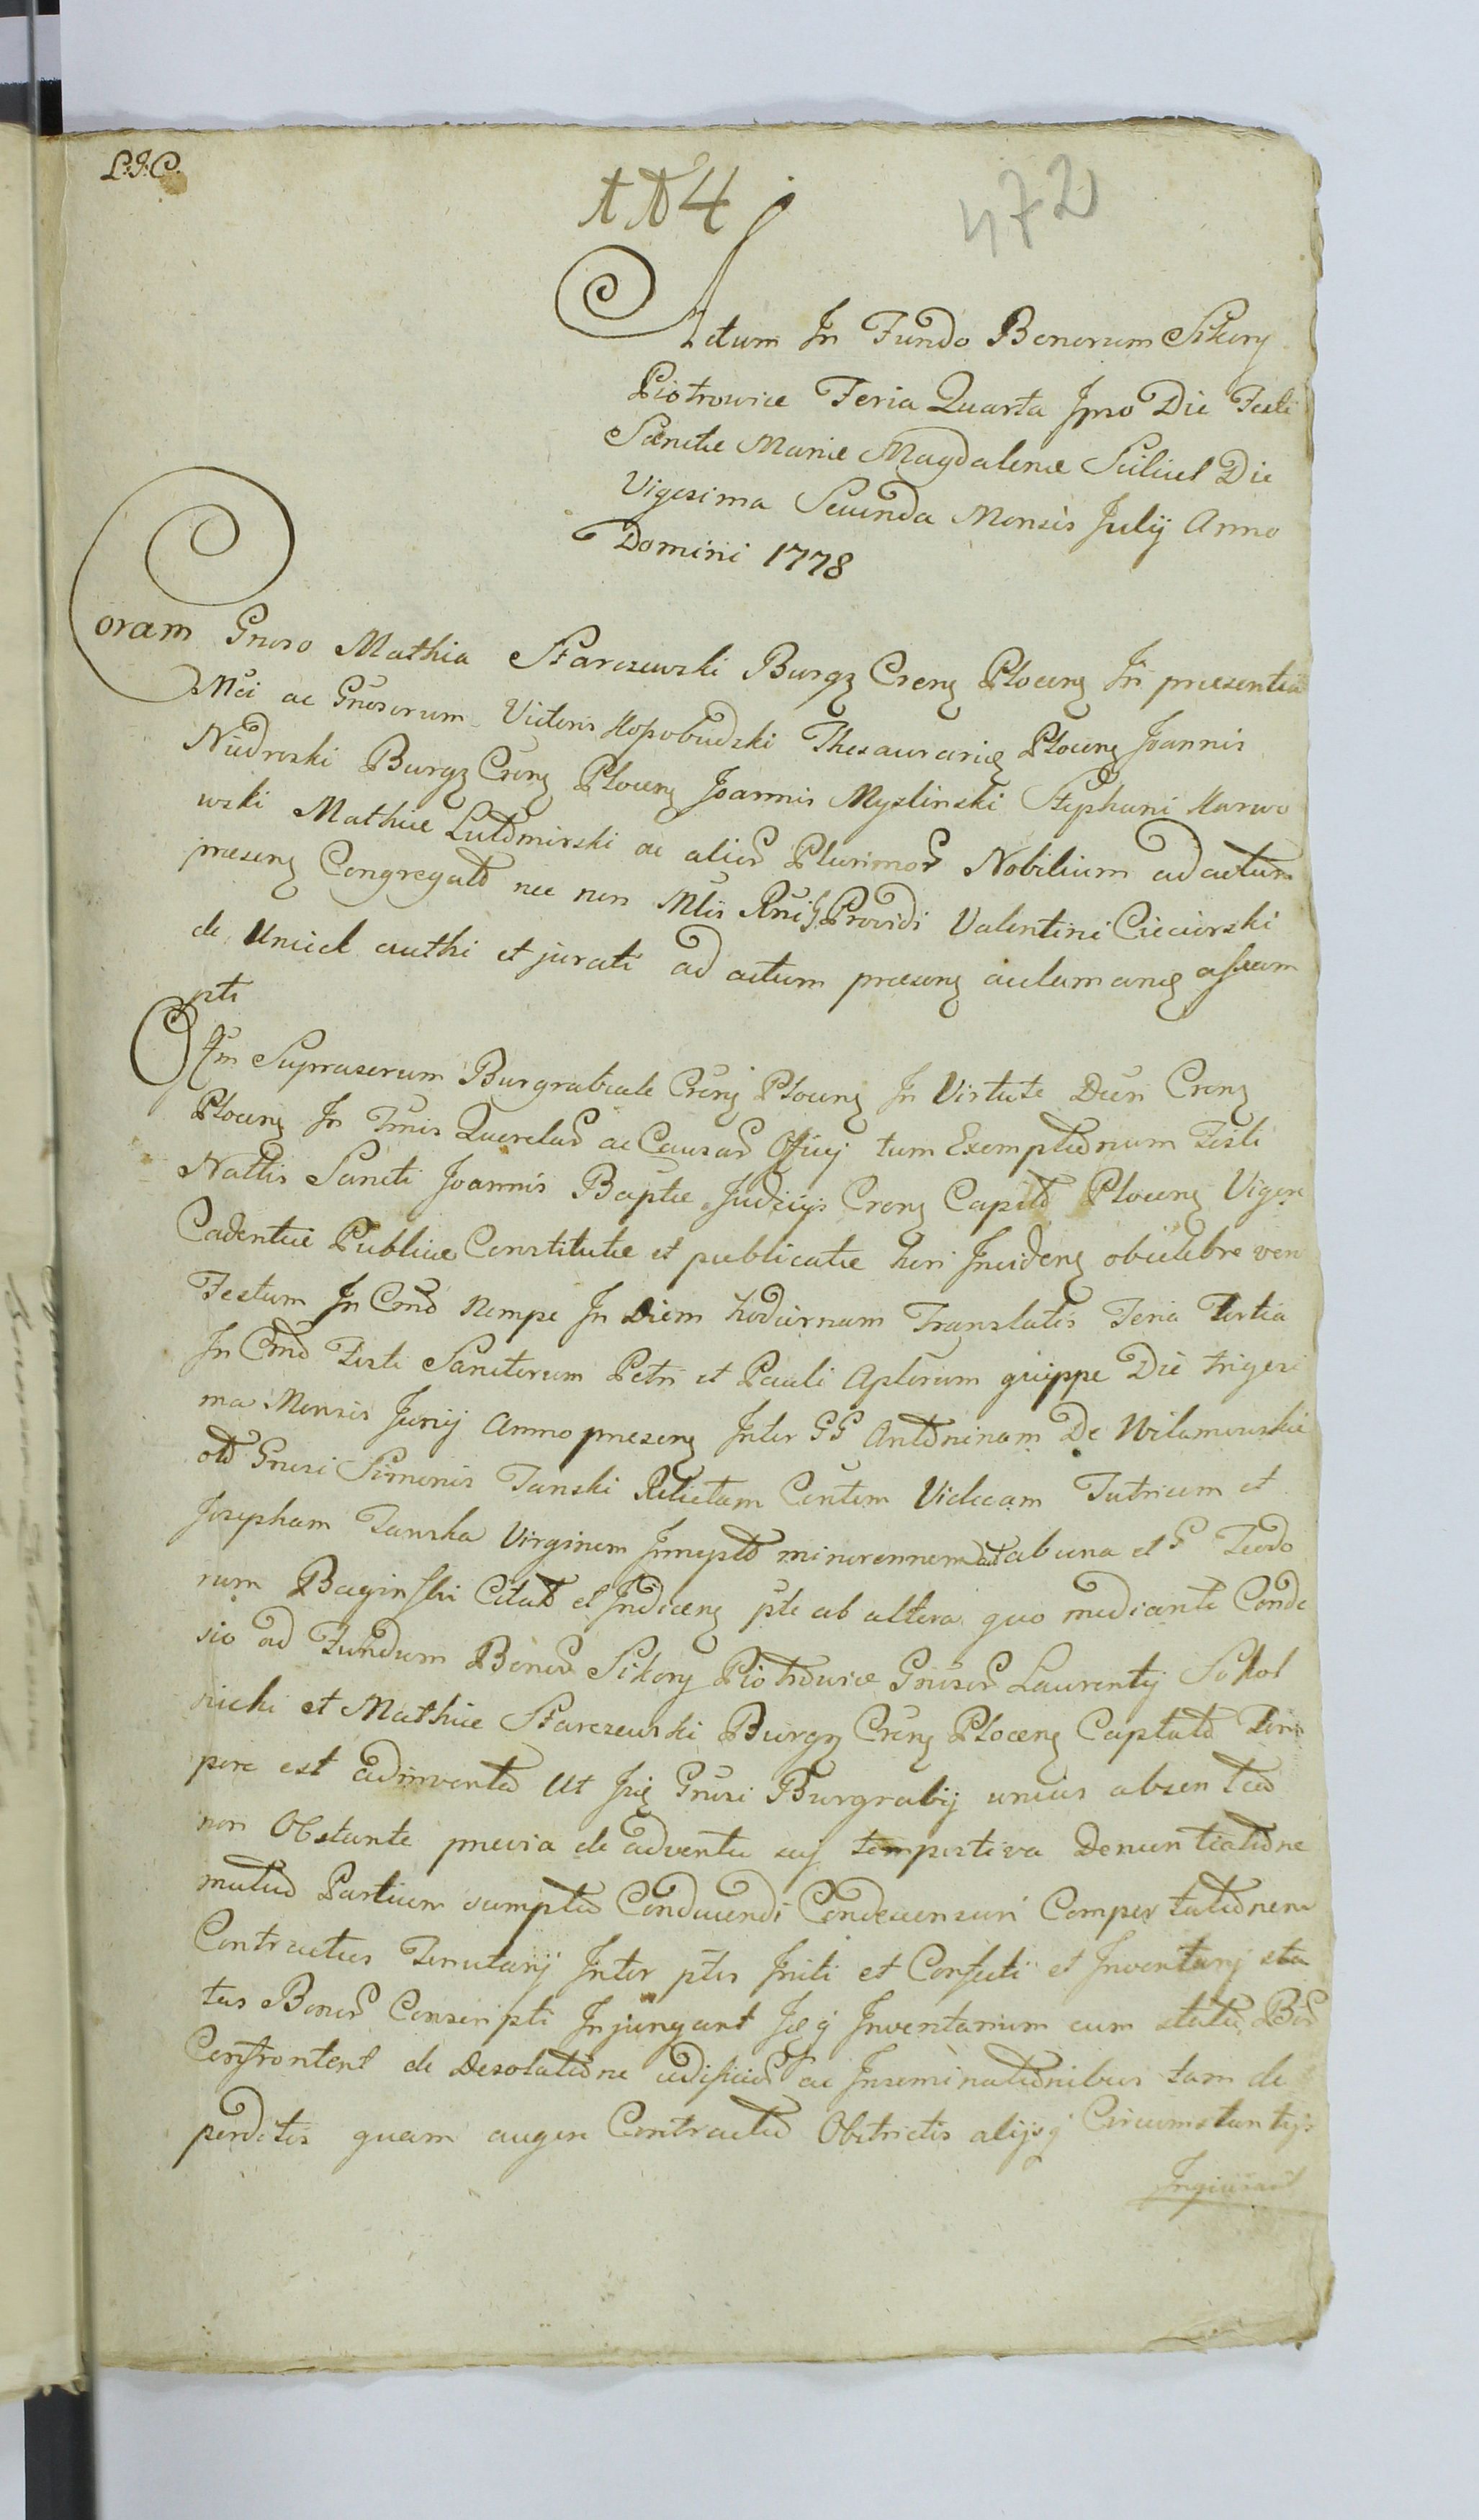 L.J.C.
NN 4
472
Actum In Fundo Bonorum Sikory
Piotrowice Feria Quarta Ipso Die Festi
Sanctæ Mariæ Magdalenæ Scilicet Die
Vigesima Secunda Mensis Julij Anno
Domini 1778
Coram Gnoso Mathia Starczewski Burgg Creng Ploceng In præsentia
Mci ac Gnosorum Victoris Kopobudzki Thesaurarieg Ploceng Joannis
Niedroski Burgg Creng Ploceng Joannis Myslinski Stephani Karwo
wski Mathiæ Lutomirski ac alior Plurimor Nobilium ad actum
præseng Congregato nec non Mlis Rni Providi Valentini Cieciorski
de Unieck authi et jurati ad actum præseng acclamang assum
pti
Offm Suprascrum Burgrabiale Creng Ploceng In Virtute Decri Creng
Ploceng In Tmis Querelar ac Causar Officij tum Exemptionum Festi
Nattis Sancti Joannis Baptæ Judicijs Creng Capito Ploceng Vigore
Cadentiæ Publicæ Constitutæ et publicatæ heri Incideng obcelebre ven
Festum In Cmo nempe In Diem hodiernam Translatis Feria Tertia
In Cmo Festi Sanctorum Petri et Pauli Aplorum quippe Die trigesi
ma Mensis Junij Anno præseng Inter GG Antoninam De Wilamowskie
olo Gnosi Simonis Tanski Relictam Contem Viduam Tutricem et
Josepham Tanska Virginem Innupto minorennem ab una et G Teodo
rum Baginski Citat et Indiceng pte ab altera quo mediante Conde
sio ad Fundum Bonor Sikory Piotrowice Gnosor Laurentij Sokol
nicki et Mathiæ Starczewski Burgg Creng Ploceng Captato Tem
pore est adinvento Ut Iig Gnosi Burgrabij unius absentia
non Obstante prævia de adventu suj tempestiva Denuntiatione
mutuo Partium sumptu Conducendi Condescensuri Comportationem
Contractus Tenutarij Inter ptes Initi et Confecti et Inventarij sta
tus Bonor Conscripti Injungant Idq Inventarium cum statu Bor
Confrontent de Desolatione ædificior ac Inseminationibus tam de
perditis quam augere Contractu Obstrictis alijsq Circumstantijs